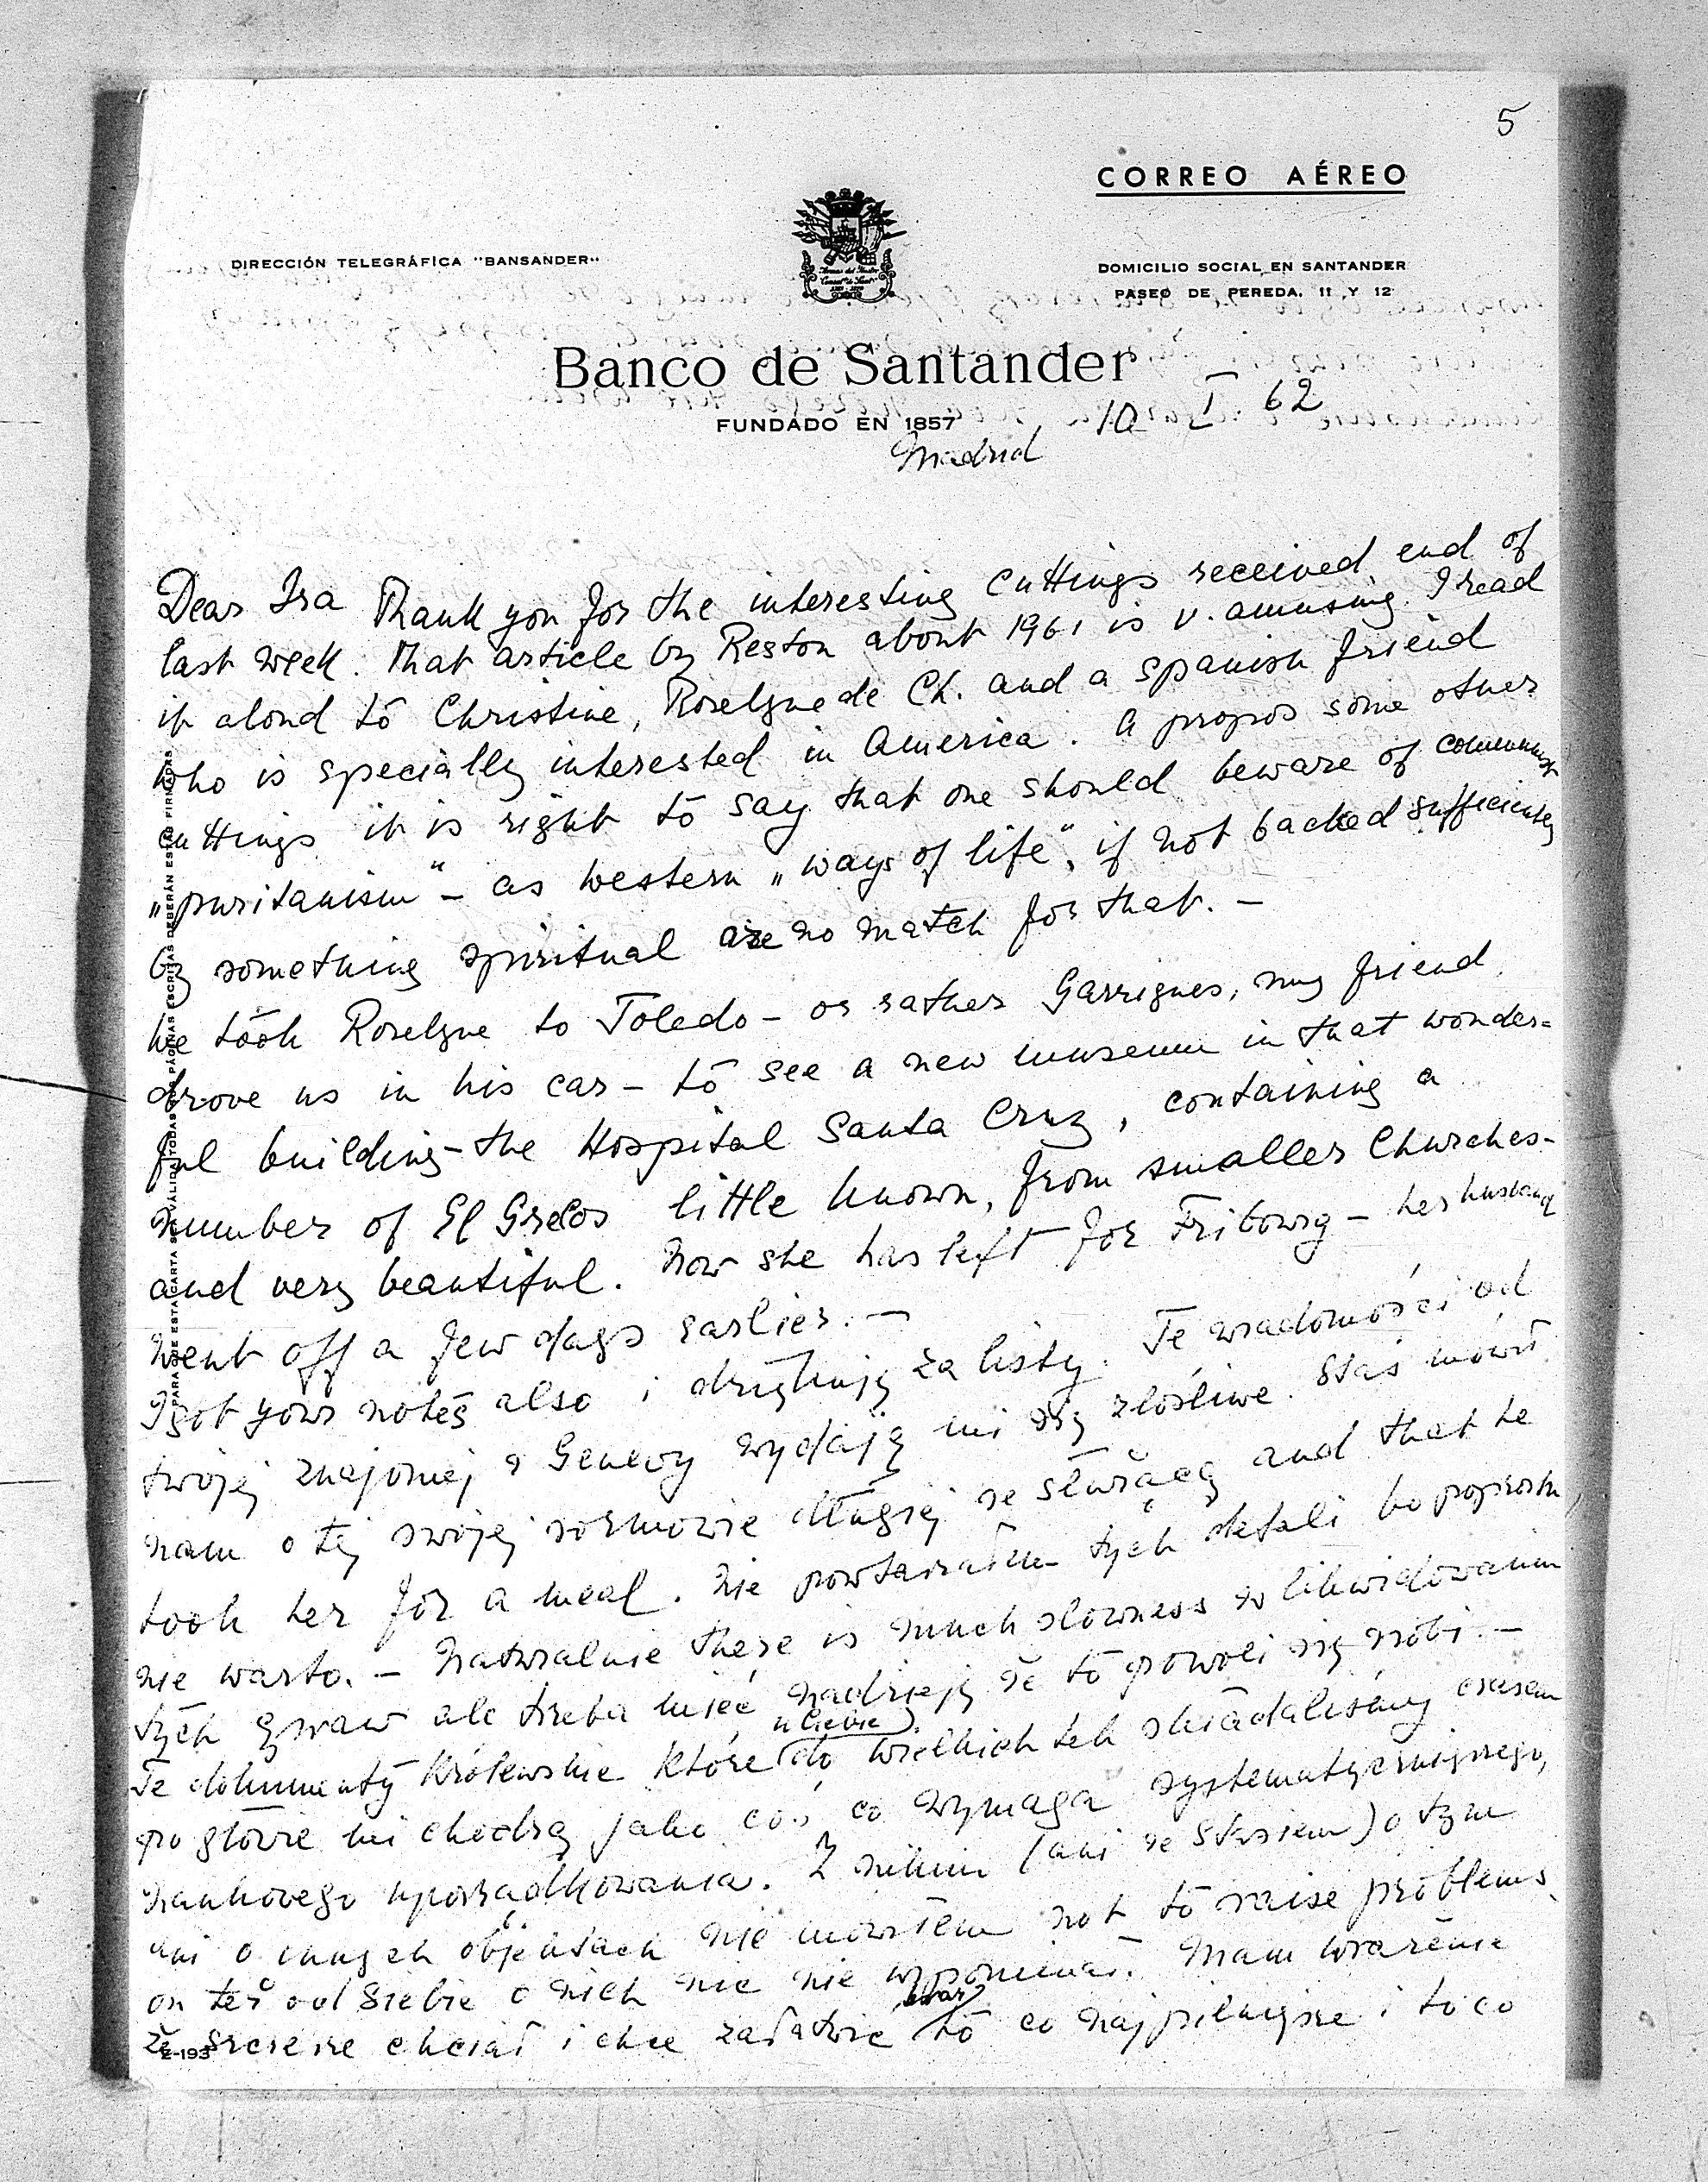 5
CORREO AÉREO
DIRECCIÓN TELEGRÁFICA "BANSANDER"
DOMICILIO SOCIAL EN SANTANDER
PASEO DE PEREDA, 11 Y 12
Banco de Santander
FUNDADO EN 1857
10 I 62
Madrid
Dear Isa Thank you for the interesting cuttings received end of
last week. That article by Reston about 1961 is v. amusing. I read
it aloud to Christine, Roselyne de Ch. and a spanish friend
who is specially interested in America. A propos some other
cuttings it is right to say that one should beware of communist
"puritanism" - as western "ways of life", if not backed sufficiently
by something spiritual are no match for that. -
We took Roselyne to Toledo - or rather Garrigues, my friend,
drove us in his car - to see a new museum in that wonder=
ful building - the Hospital Santa Cruz, containing a
number of El Grecos little known, from smaller Churches -
and very beautiful. Now she has left for Fribourg - her husband
went off a few days earlier. -
I got your notes also i dziękuję za listy. Te wiadomości od
twojej znajomej z Genevy wydają mi się złośliwe. Staś mówił
nam o tej swojej rozmowie długiej ze służącą and that he
took her for a meal. Nie powtarzałem tych detali bo poprostu
nie warto. - Naturalnie there is much slowness w likwidowaniu
tych spraw ale trzeba mieć nadzieję że to powoli się zrobi. -
Te dokumenty Królewskie które (u Ciebie) do wielkich tek składaliśmy czasem
po głowie mi chodzą jako coś, co wymaga systematyczniejszego,
naukowego uporządkowania. Z nikim (ani ze Stasiem) o tym
ani o innych objektach nie mówiłem not to raise problems
on też od siebie o nich nic nie wspominał. Mam wrażenie
że szczerze chciał i chce załatwić to co najpilniejsze i to co
PARA QUE ESTA CARTA SEA VÁLIDA TODAS LAS PÁGINAS ESCRITAS DEBERÁN ESTAR FIRMADAS
E-193